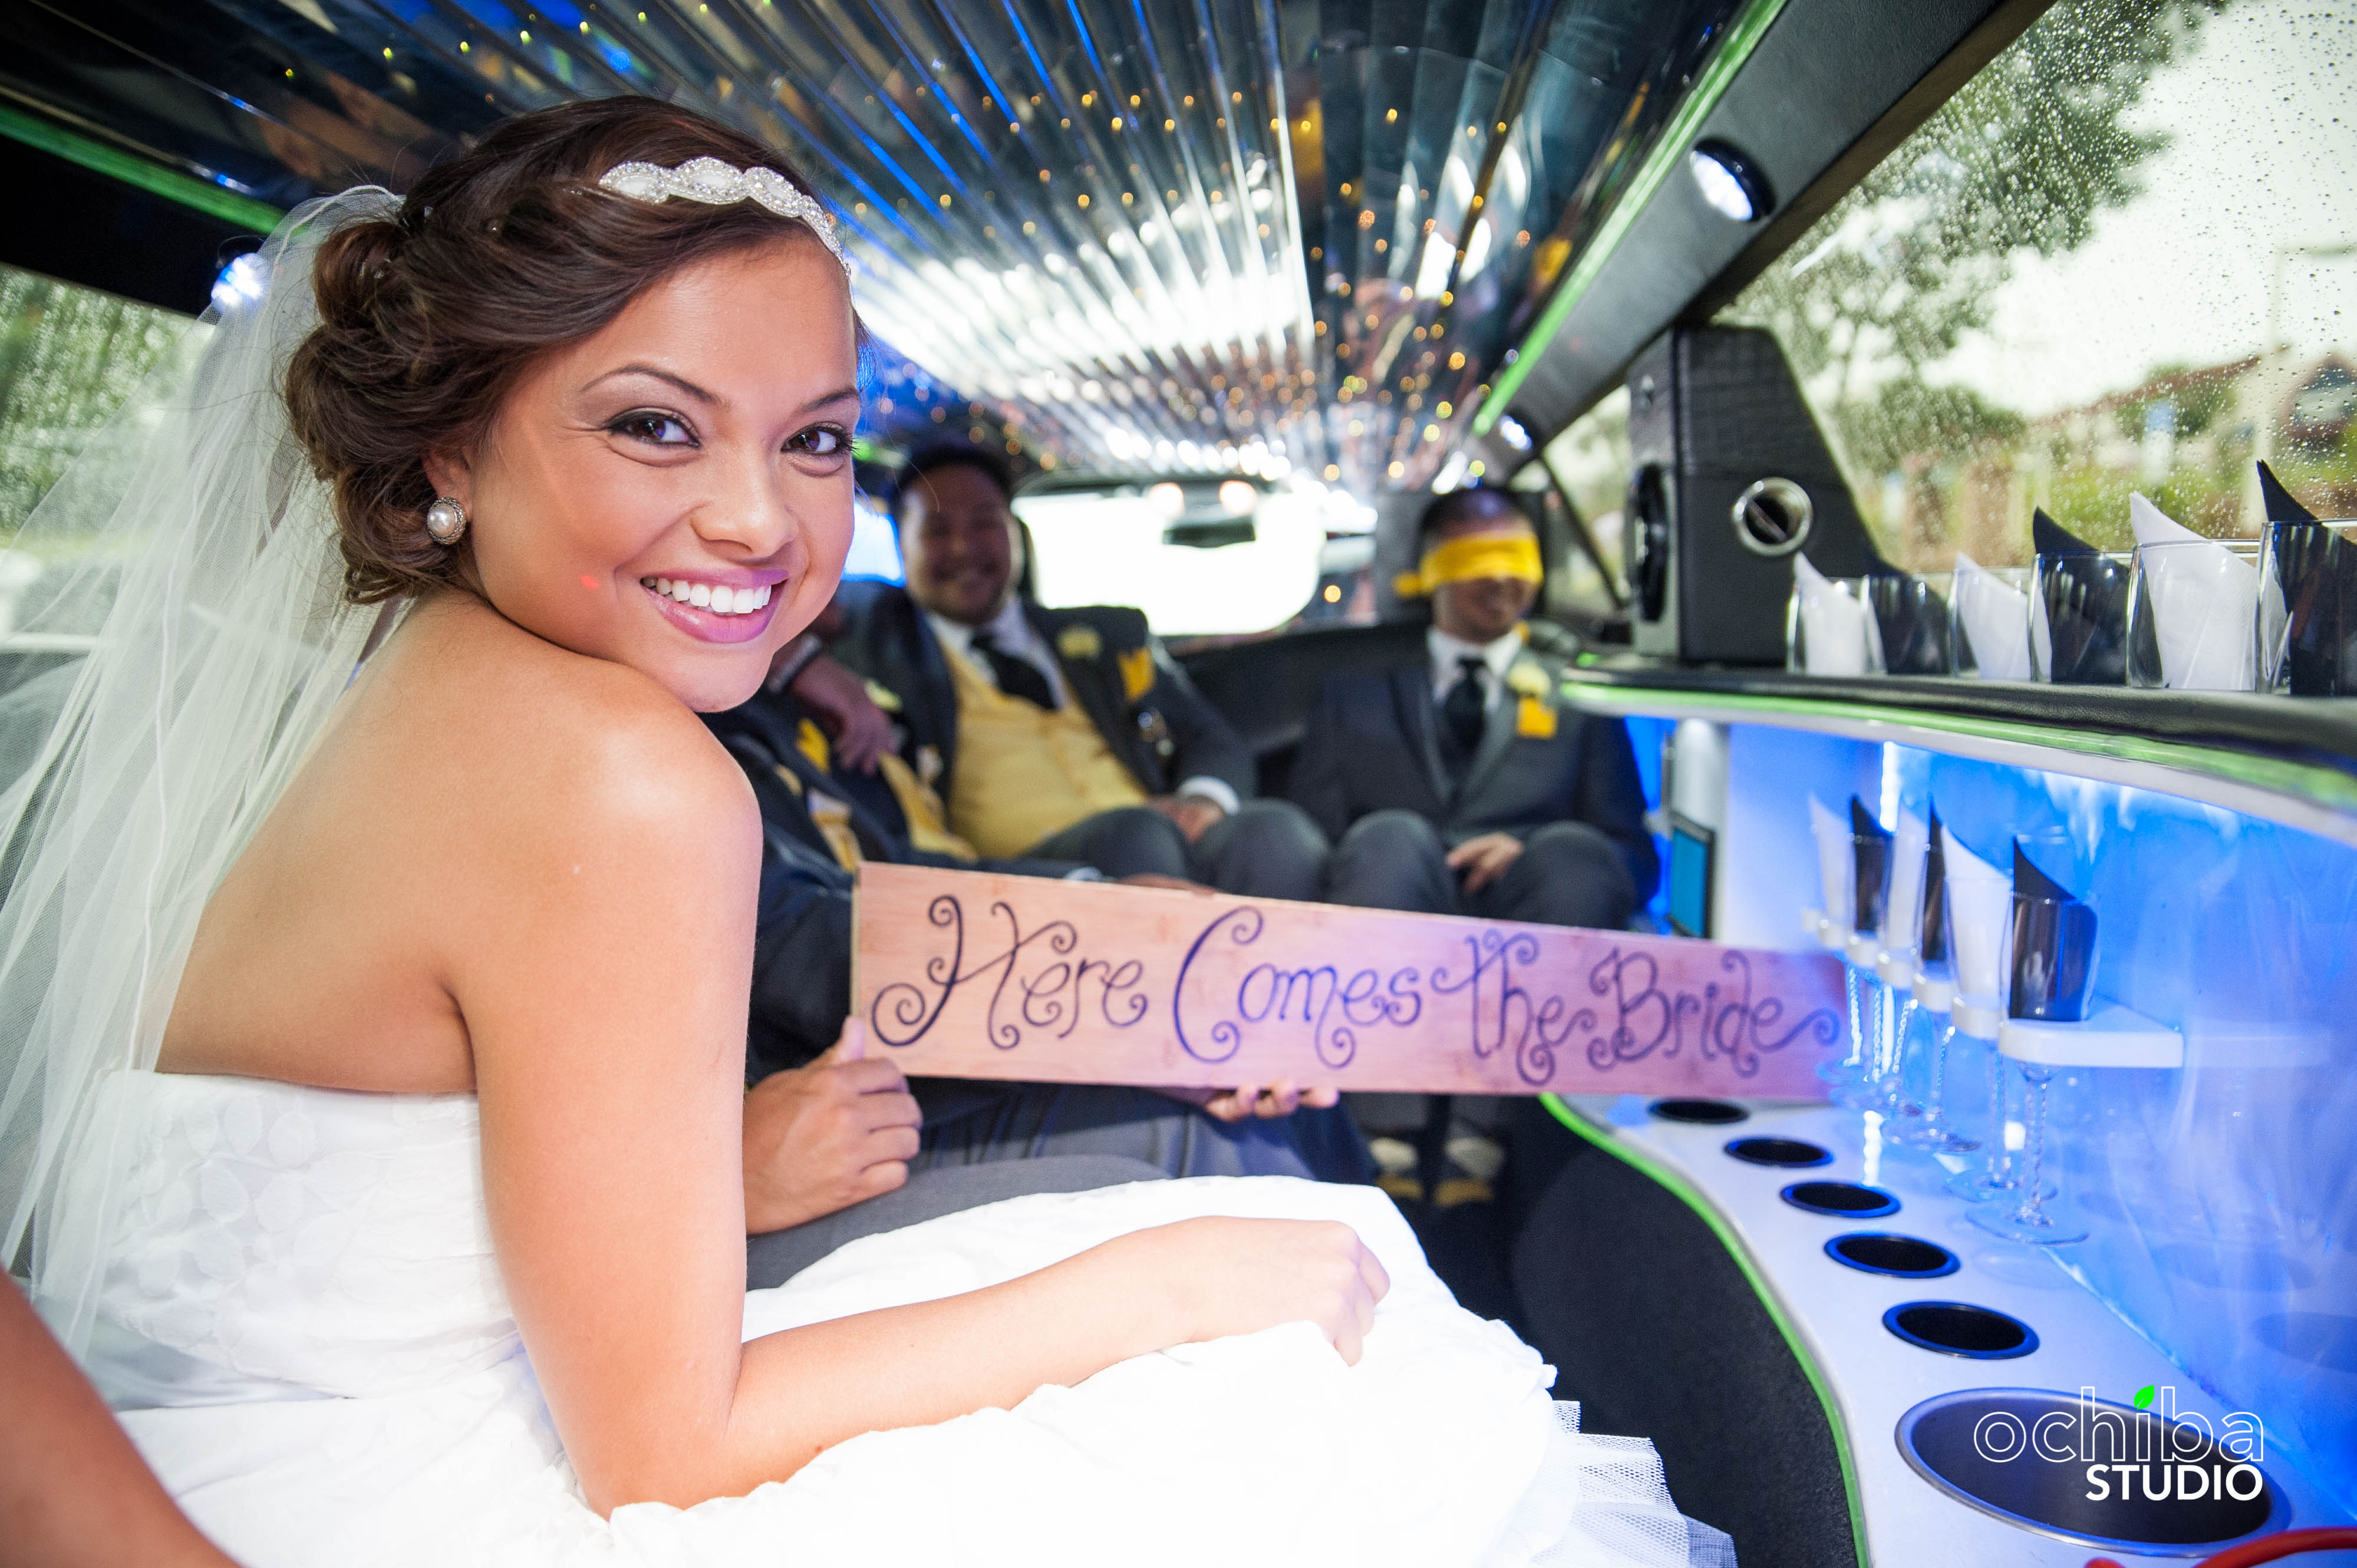 Here Comes the Bride
ochiba
STUDIO